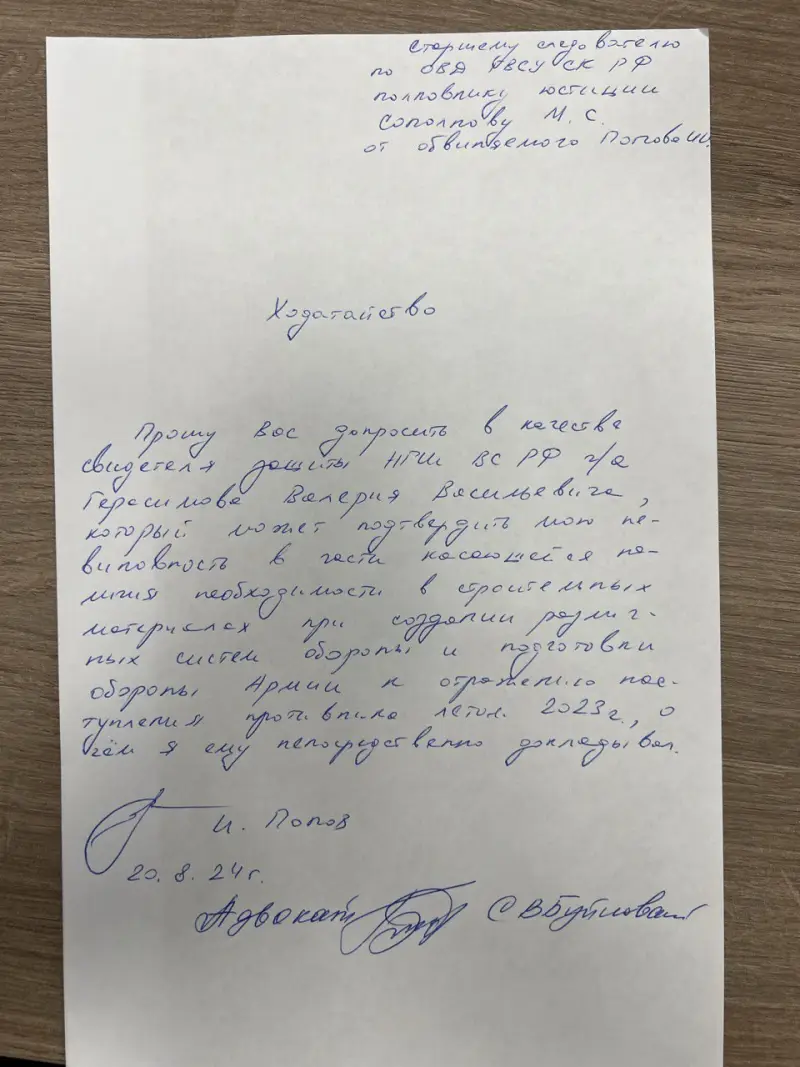 Старшему следователю
по ОВД ГВСУ СК РФ
полковнику юстиции
Сополпову М. С.
от обвиняемого Попова И.И.
Ходатайство
Прошу Вас допросить в качестве
свидетеля защиты НГШ ВС РФ г/а
Герасимова Валерия Васильевича,
который может подтвердить мою не-
виновность в части касающейся на-
личия необходимости в строительных
материалах при создании различ-
ных систем обороны и подготовки
обороны Армии к отражению нас-
тупления противника летом 2023г., о
чём я ему непосредственно докладывал.
И. Попов
20.8.24г.
Адвокат С В Буйновский